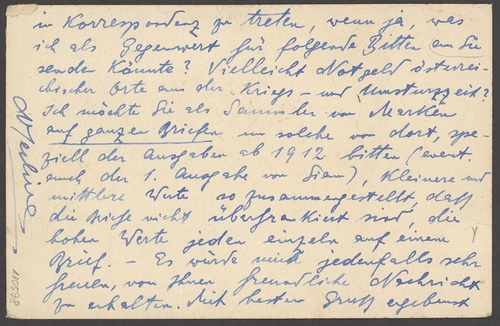 in Korrespondenz zu treten, wenn ja, was
ich als Gegenwert für folgende Bitten an Sie
senden könnte? Vielleicht Notgeld österrei-
chischer Orte aus der Kriegs- und Umsturzzeit?
Ich möchte Sie als Sammler von Marken
auf ganzen Briefen um solche von dort, spe-
ziell der Ausgaben ab 1912 bitten (event.
auch der 1. Ausgabe von Siam), kleinere und
mittlere Werte so zusammengestellt, daß
die Briefe nicht überfrankiert sind, die
hohen Werte jeden einzeln auf einem
Brief. - Es würde mich jedenfalls sehr
freuen, von Ihnen freundliche Nachricht
zu erhalten. Mit bestem Gruß ergebenst
180598